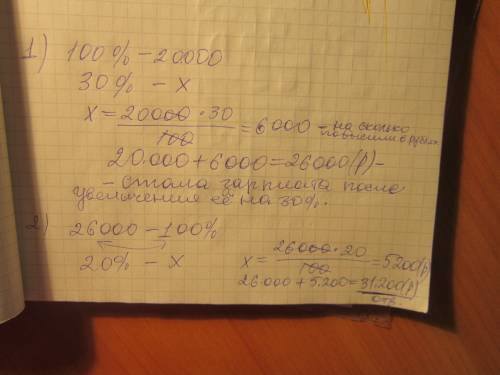 1) 100% – 20000
30% – x
x = 20000 · 30 / 100 = 6000 – на сколько повысили в рублях
20.000 + 6000 = 26000 (р) –
– стала зарплата после
увеличения её на 30%.
2) 26000 – 100%
20% – x
x = 26000 · 20 / 100 = 5200 (р)
26.000 + 5.200 = 31.200 (р)
отв.